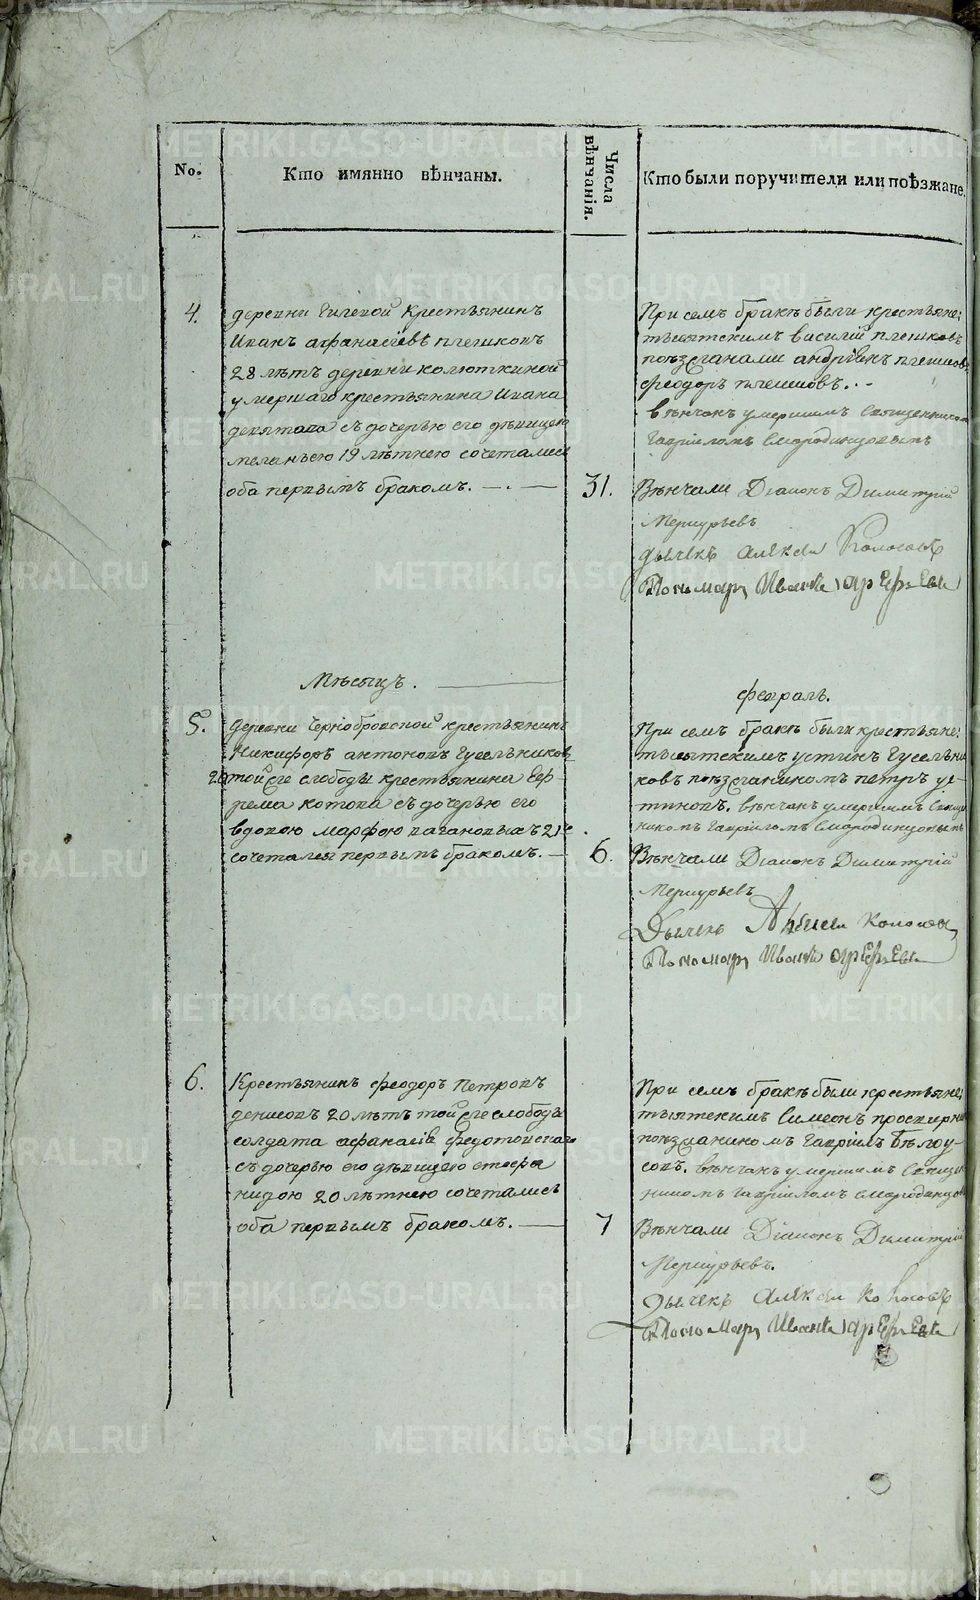 No.
Кто имянно вѣнчаны.
Числа вѣнчанія.
Кто были поручители или поѣзжане.
4.
деревни Гилевой крестьянинъ
Иванъ афанасіевъ плешковъ
28 лѣтъ деревни колюткиной
умершаго крестьянина Ивана
девятова съ дочерью его дѣвицею
меланьею 19 лѣтнею сочетались
оба первымъ бракомъ.
31.
При семъ бракѣ были крестьяне:
тысятскимъ василій плешковъ
поѣзжанами андрѣянъ плешковъ
феодоръ плешковъ.
вѣнчанъ умершимъ Священникомъ
Гавріиломъ Смородинцовымъ
Вѣнчали Діаконъ Димитрій
Меркурьевъ
дьячекъ алѣксеи Колосовъ
Пономарь Иванъ
Мѣсяцъ.
февраль.
5.
деревни Чернобровской крестьянинъ
Никифоръ антоновъ Гусельниковъ
20 той же слободы крестьянина Еф-
рема котова съ дочерью его
вдовою марфою 21
сочетался первымъ бракомъ.
6.
При семъ бракѣ были крестьяне:
тысятскимъ устинъ Гусельни-
ковъ поѣзжаникомъ петръ ус-
тиновъ. вѣнчанъ умершимъ Священ-
никомъ Гавріиломъ Смородинцовымъ
Вѣнчали Діаконъ Димитрій
Меркурьевъ
Дьячекъ Алѣксеи Колосовъ
Пономарь Иванъ
6.
Крестьянинъ феодоръ Петровъ
денисовъ 20 лѣтъ той же слободы
солдата афанасія
съ дочерью его дѣвицею
нидою 20 лѣтнею сочетались
оба первымъ бракомъ.
7
При семъ бракѣ были крестьяне:
тысятскимъ Симеонъ
поѣзжаникомъ Гавріилъ Бѣлоу-
совъ. вѣнчанъ умершимъ Священ-
никомъ Гавріиломъ Смородинцовымъ
Вѣнчали Діаконъ Димитрій
Меркурьевъ.
Дьячекъ Алѣксеи Колосовъ
Пономарь Иванъ
METRIKI.GASO-URAL.RU